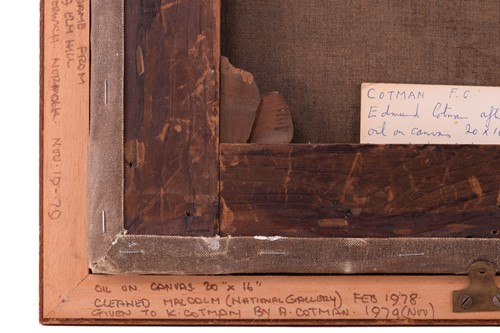 FRAME FROM
ELM HILL
NORWICH NORFOLK. NOV. 10-79
COTMAN F.G.
Edmund Cotman afte
oil on canvas 20 x 16
OIL ON CANVAS 20" x 16"
CLEANED MALCOLM (NATIONAL GALLERY) FEB 1978
GIVEN TO K. COTMAN BY A. COTMAN. 1979 (NOV)